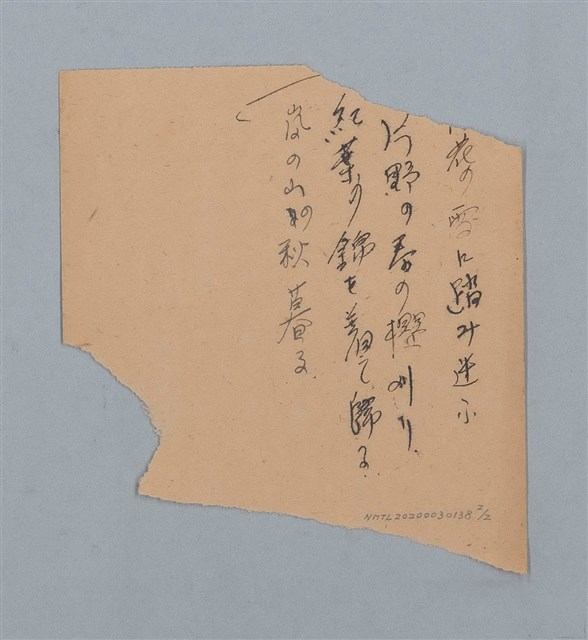 花の雪に踏み迷ふ
片野の春の櫻刈り
紅葉の錦を着て歸る
嵐の山の秋暮る
NMTL20200030138 2/2